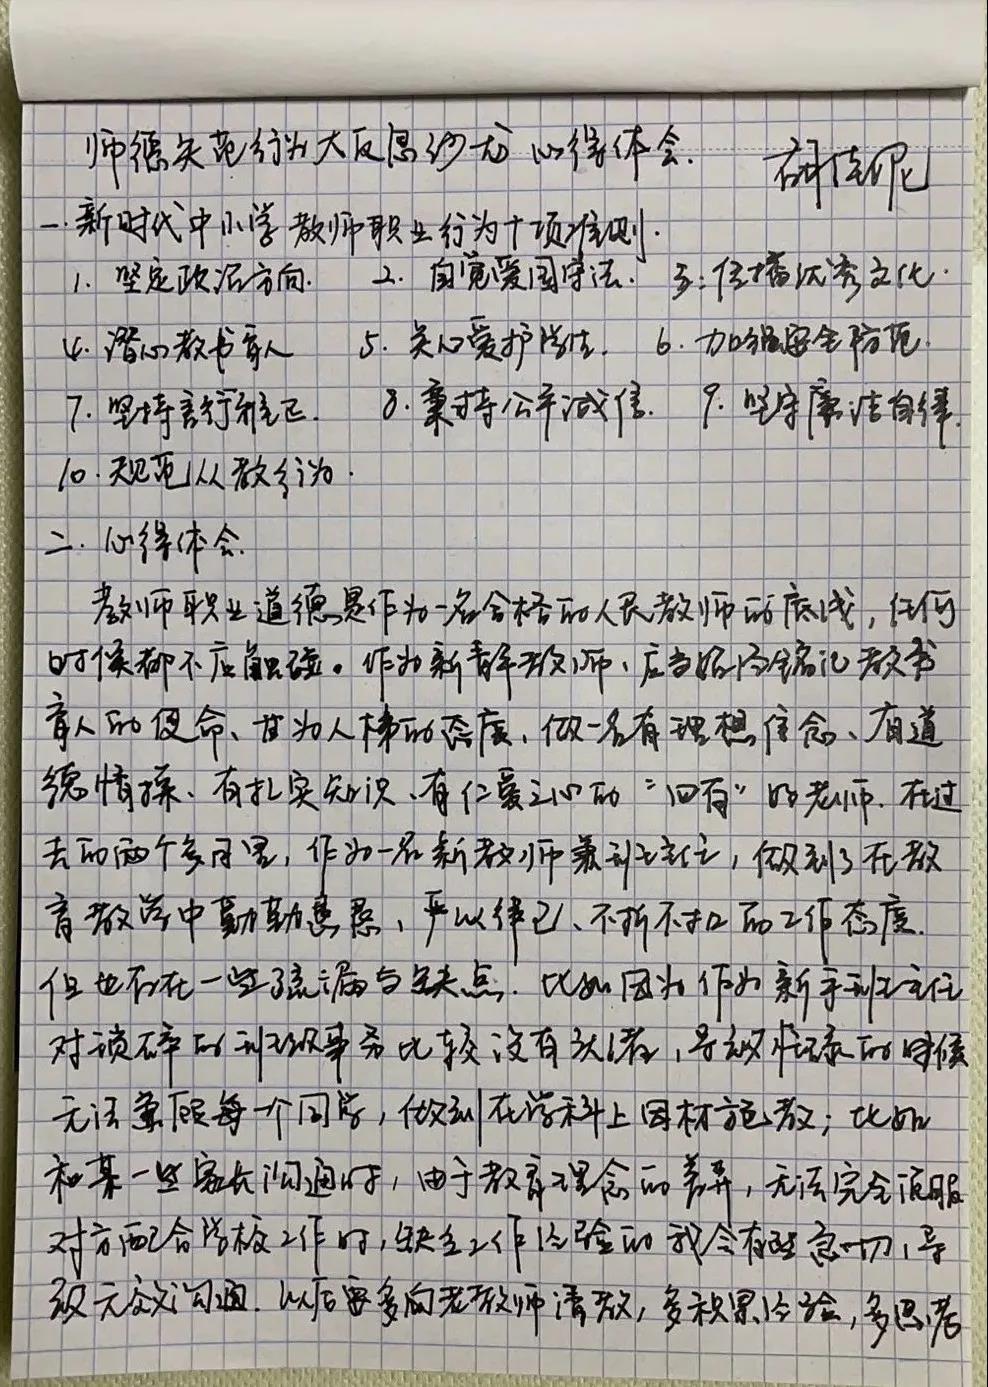 师德失范行为大反思 心得体会.
一.新时代中小学教师职业行为十项准则.
1. 坚定政治方向. 2. 自觉爱国守法. 3. 传播优秀文化.
4. 潜心教书育人 5. 关心爱护学生. 6. 加强安全防范.
7. 坚持言行雅正. 8. 秉持公平诚信. 9. 坚守廉洁自律.
10. 规范从教行为.
二. 心得体会.
教师职业道德是作为一名合格的人民教师的底线,任何
时候都不应触碰。作为新青年教师、应当始终铭记教书
育人的使命、甘为人梯的态度,做一名有理想信念、有道
德情操、有扎实知识、有仁爱之心的“四有”好老师.在过
去的两个多月里,作为一名新教师兼班主任,做到了在教
育教学中勤勤恳恳、严以律己、不折不扣的工作态度.
但也存在一些疏漏与缺点.比如因为作为新手班主任
对琐碎的班级事务比较没有头绪,导致忙碌的时候
无法兼顾每一个同学,做到在学科上因材施教;比如
和某一些家长沟通时,由于教育理念的差异,无法完全说服
对方配合学校工作时,缺乏工作经验的我会有些急切,导
致无效沟通.以后要多向老教师请教,多积累经验,多思考